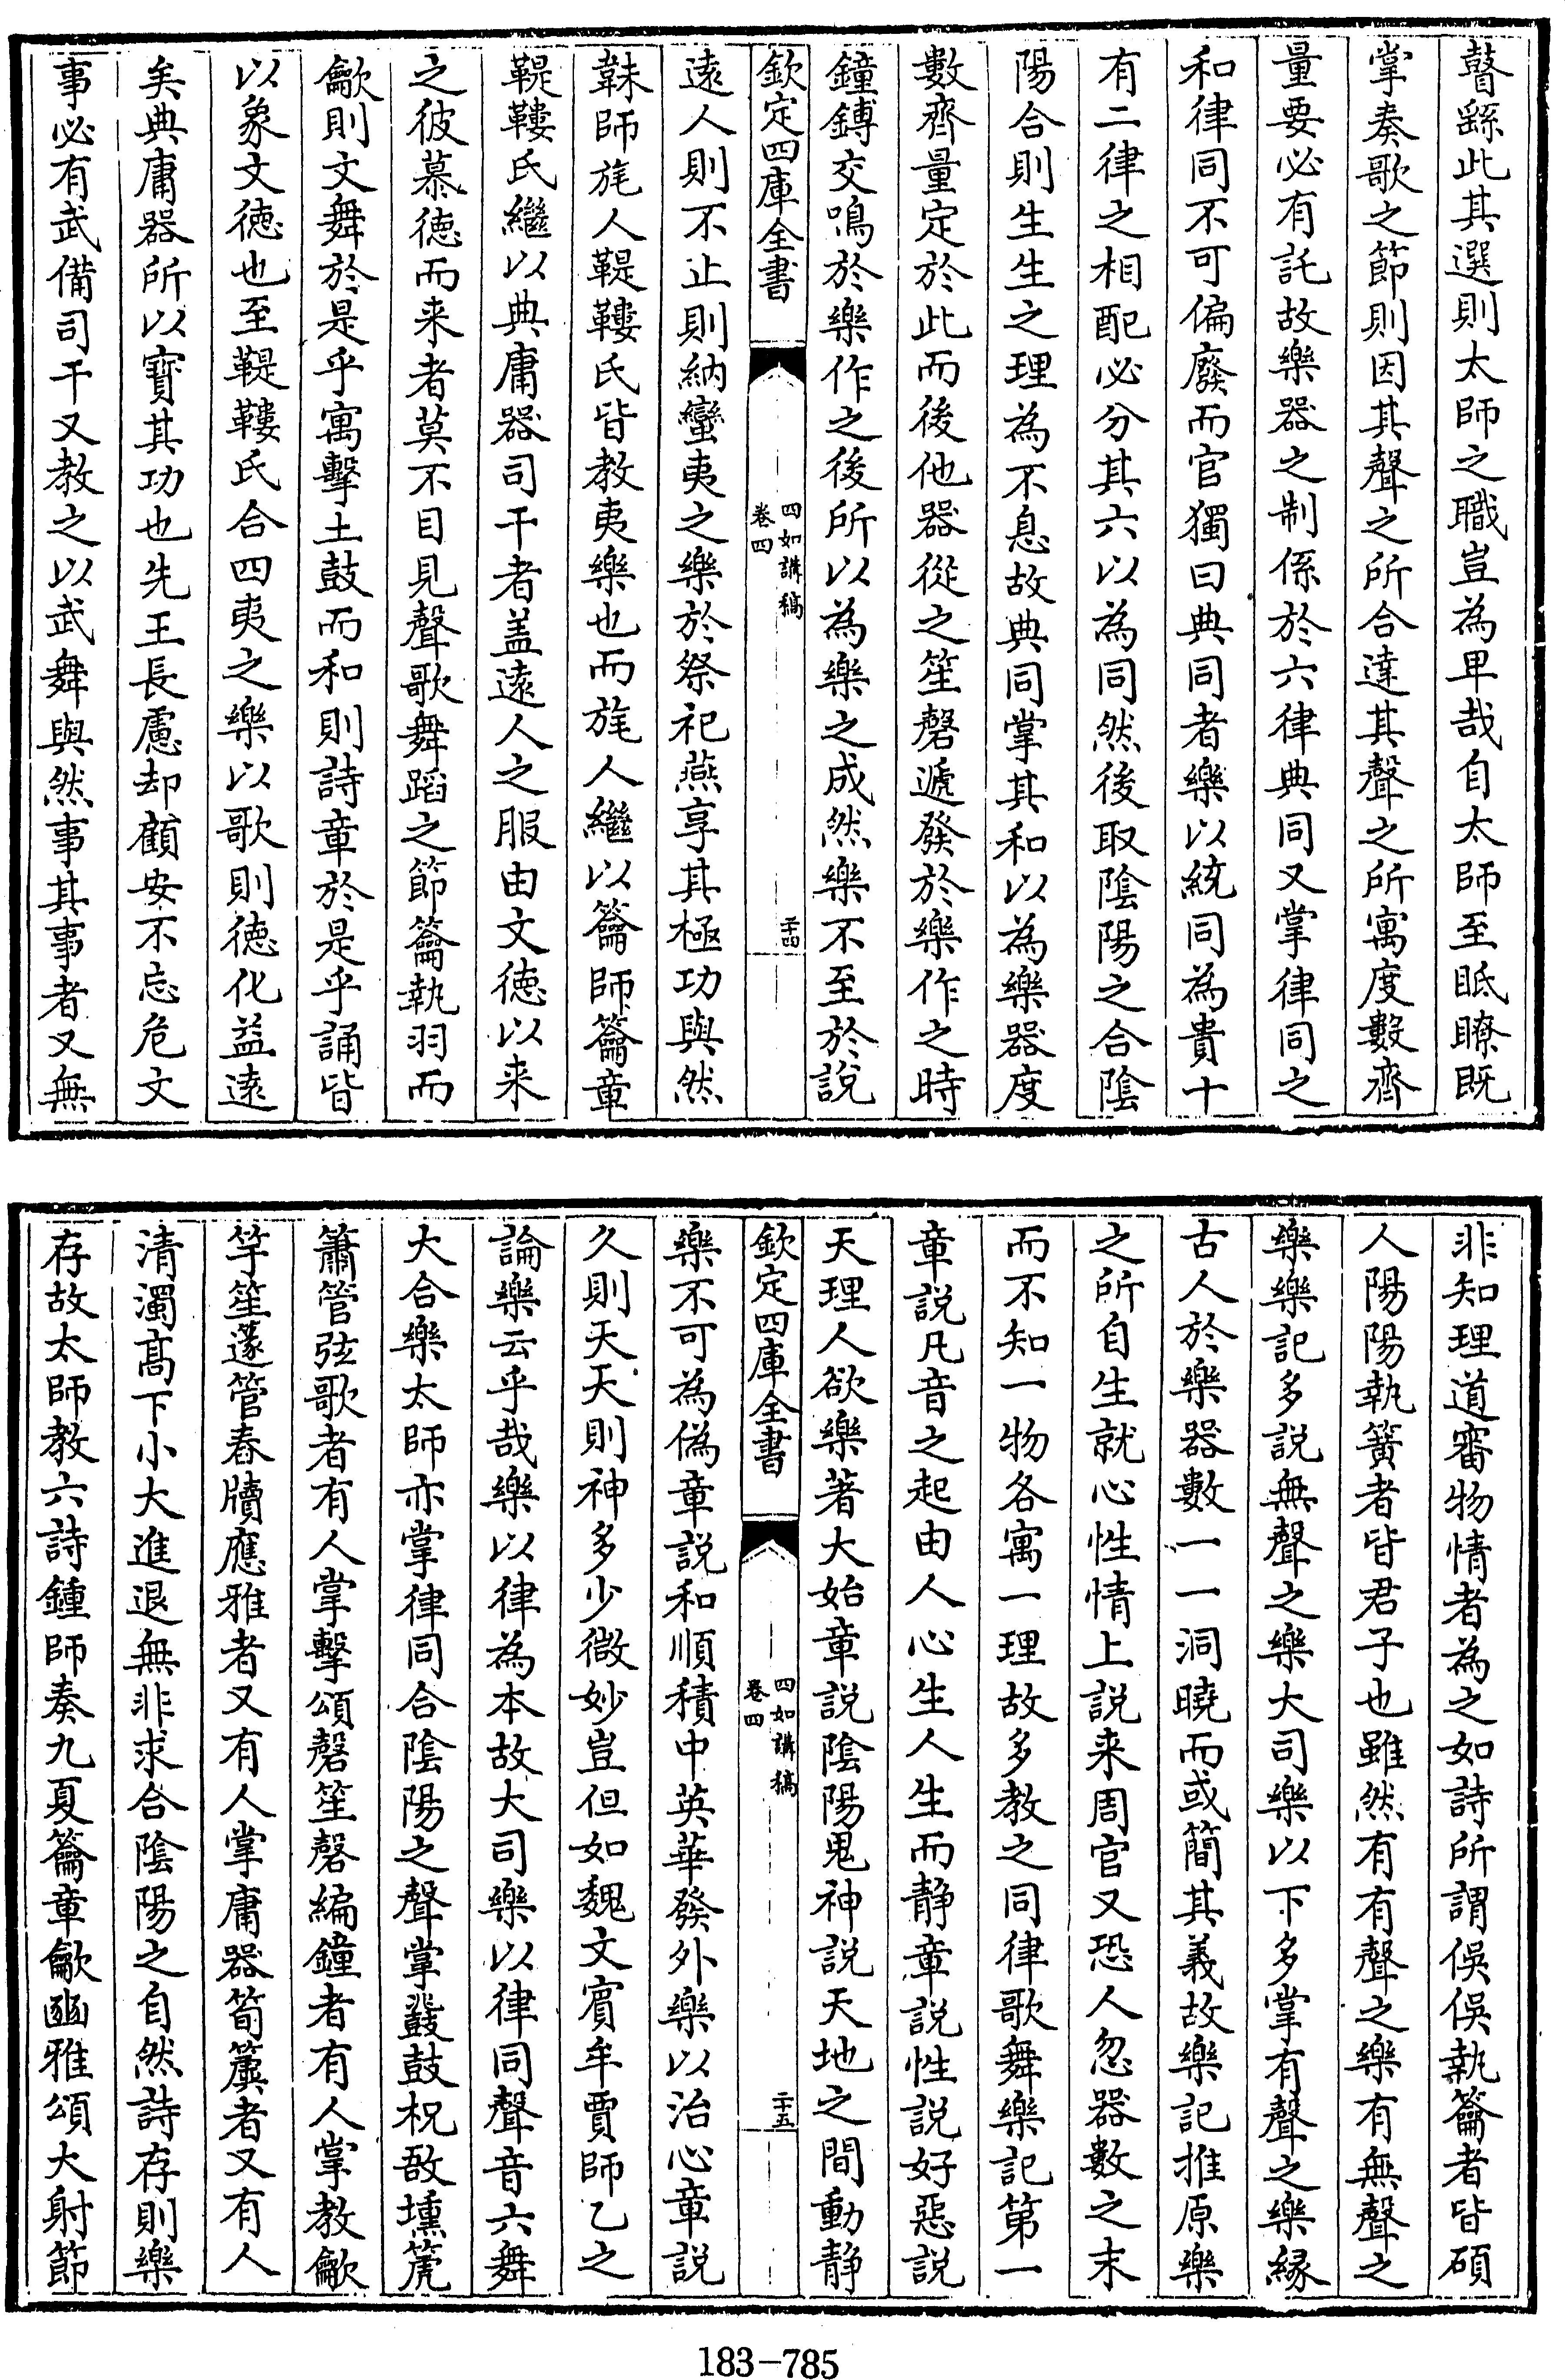 瞽繇此其選則太師之職豈為卑哉自太師至眡瞭既
掌奏歌之節則因其聲之所合達其聲之所寓度數齊
量要必有託故樂器之制係於六律典同又掌律同之
和律同不可偏廢而官獨曰典同者樂以統同為貴十
有二律之相配必分其六以為同然後取隂陽之合隂
陽合則生生之理為不息故典同掌其和以為樂器度
數齊量定於此而後他器從之笙磬遞發於樂作之時
鐘鎛交鳴於樂作之後所以為樂之成然樂不至於說
欽定四庫全書
四如講稿
卷四
二十四
逺人則不止則納蠻夷之樂於祭祀燕享其極功與然
韎師旄人鞮鞻氏皆教夷樂也而旄人繼以籥師籥章
鞮鞻氏繼以典庸器司干者盖逺人之服由文徳以来
之彼慕徳而来者莫不目見聲歌舞蹈之節籥執羽而
龡則文舞於是乎寓擊土鼓而和則詩章於是乎誦皆
以象文徳也至鞮鞻氏合四夷之樂以歌則徳化益逺
矣典庸器所以寶其功也先王長慮却顧安不忘危文
事必有武備司干又教之以武舞與然事其事者又無
非知理道審物情者為之如詩所謂俁俁執籥者皆碩
人陽陽執簧者皆君子也雖然有有聲之樂有無聲之
樂樂記多説無聲之樂大司樂以下多掌有聲之樂縁
古人於樂器數一一洞曉而或簡其義故樂記推原樂
之所自生就心性情上説来周官又恐人忽器數之末
而不知一物各寓一理故多教之同律歌舞樂記第一
章説凡音之起由人心生人生而静章説性説好惡説
天理人欲樂著大始章説隂陽鬼神説天地之間動静
欽定四庫全書
四如講稿
卷四
二十五
樂不可為偽章説和順積中英華發外樂以治心章説
久則天天則神多少微妙豈但如魏文賔牟賈師乙之
論樂云乎哉樂以律為本故大司樂以律同聲音六舞
大合樂太師亦掌律同合隂陽之聲掌鼗鼓柷敔壎箎
簫管弦歌者有人掌擊頌磬笙磬編鐘者有人掌教龡
竽笙篴管舂牘應雅者又有人掌庸器筍簴者又有人
清濁髙下小大進退無非求合隂陽之自然詩存則樂
存故太師教六詩鍾師奏九夏籥章龡豳雅頌大射節
183-785